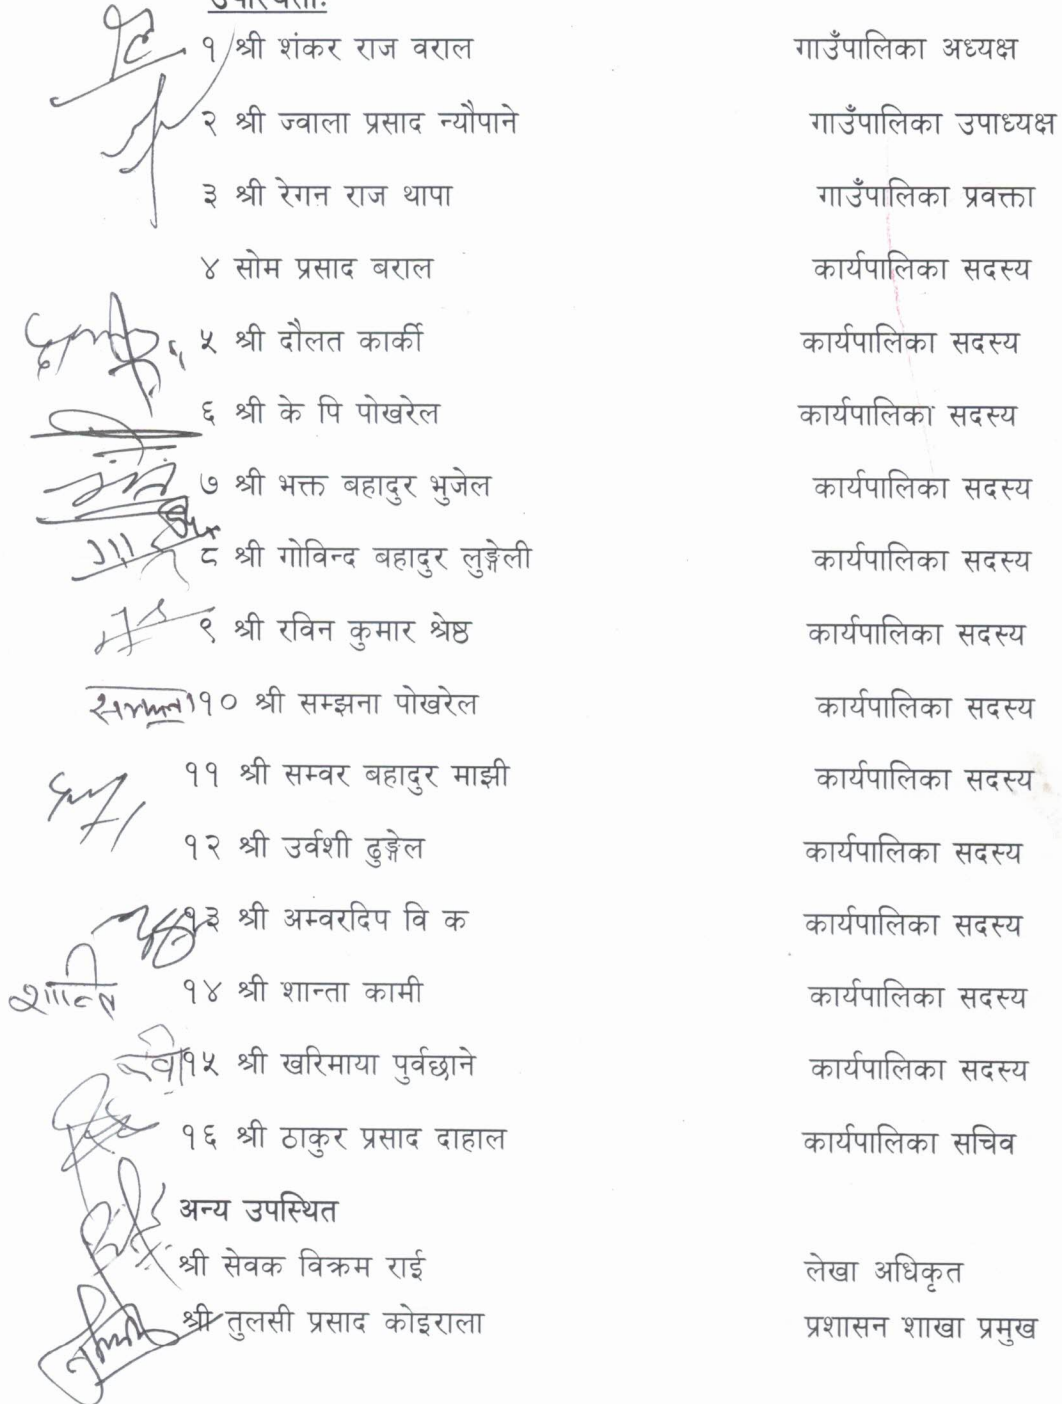 उपस्थिती:
१ श्री शंकर राज वराल गाउँपालिका अध्यक्ष
२ श्री ज्वाला प्रसाद न्यौपाने गाउँपालिका उपाध्यक्ष
३ श्री रेगन राज थापा गाउँपालिका प्रवक्ता
४ सोम प्रसाद बराल कार्यपालिका सदस्य
५ श्री दौलत कार्की कार्यपालिका सदस्य
६ श्री के पि पोखरेल कार्यपालिका सदस्य
७ श्री भक्त बहादुर भुजेल कार्यपालिका सदस्य
८ श्री गोविन्द बहादुर लुङ्गेली कार्यपालिका सदस्य
९ श्री रविन कुमार श्रेष्ठ कार्यपालिका सदस्य
१० श्री सम्झना पोखरेल कार्यपालिका सदस्य
११ श्री सम्वर बहादुर माझी कार्यपालिका सदस्य
१२ श्री उर्वशी ढुङ्गेल कार्यपालिका सदस्य
१३ श्री अम्वरदिप वि क कार्यपालिका सदस्य
१४ श्री शान्ता कामी कार्यपालिका सदस्य
१५ श्री खरिमाया पुर्वछाने कार्यपालिका सदस्य
१६ श्री ठाकुर प्रसाद दाहाल कार्यपालिका सचिव
अन्य उपस्थित
श्री सेवक विक्रम राई लेखा अधिकृत
श्री तुलसी प्रसाद कोइराला प्रशासन शाखा प्रमुख